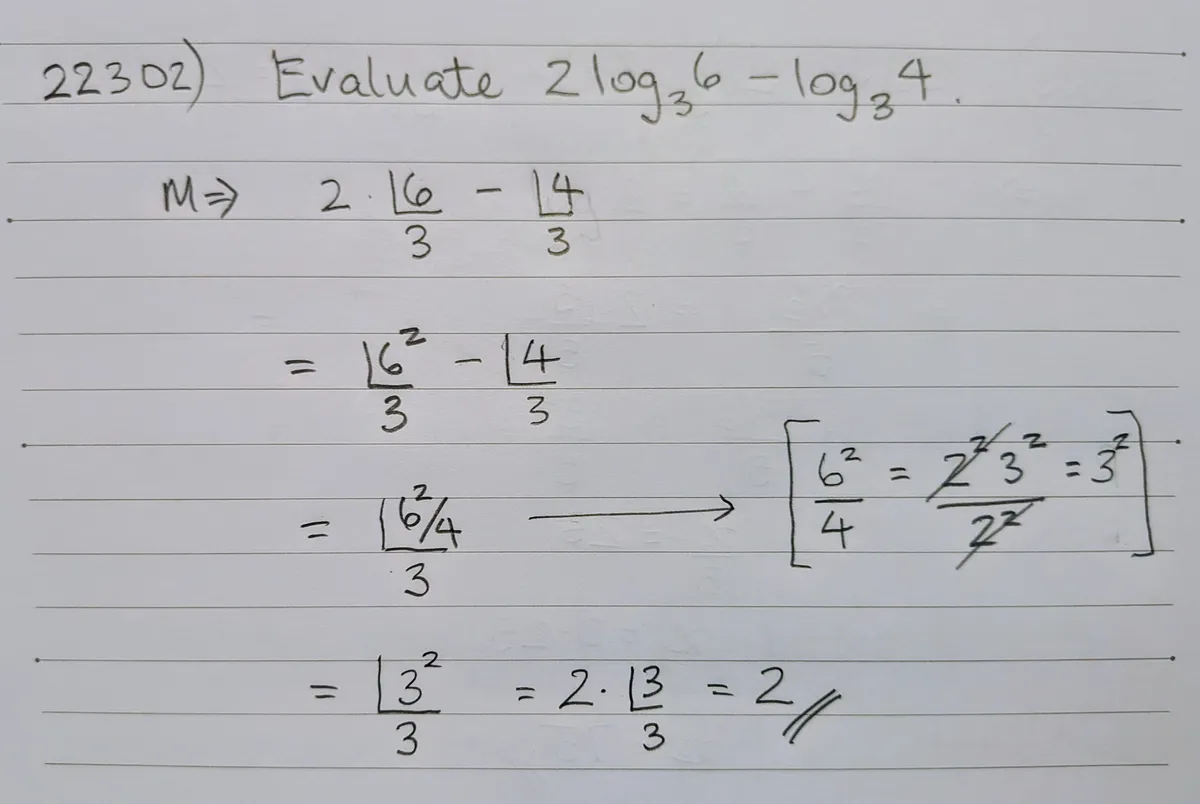 22302) Evaluate 2 log₃6 − log₃4.
M⇒ 2 · ⌊6 − ⌊4
3 3
= ⌊6² − ⌊4
3 3
= ⌊6²/4 ⟶ [6²/4 = 2²3²/2² = 3²]
3
= ⌊3² = 2 · ⌊3 = 2 //
3 3